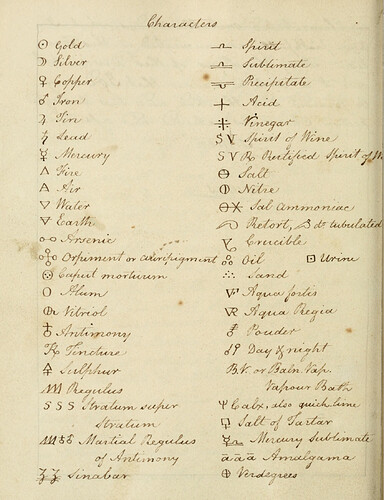 Characters
☉ Gold
☽ Silver
♀ Copper
♂ Iron
♃ Tin
♄ Lead
☿ Mercury
🜂 Fire
🜁 Air
🜄 Water
🜃 Earth
Arsenic
Orpiment or auripigment
Caput mortuum
Alum
Vitriol
♁ Antimony
Tincture
🜍 Sulphur
Regulus
SSS Stratum super
Stratum
Martial Regulus
of Antimony
Sinabar
Spirit
Sublimate
Precipitate
Acid
Vinegar
SV Spirit of Wine
SVR Rectified Spirit of W
Salt
Nitre
Sal ammoniac
Retort, do tubulated
Crucible
Oil Urine
Sand
Aqua fortis
Aqua Regia
Powder
Day & night
BV. or Baln. Vap.
Vapour Bath
Calx, also quick lime
Salt of Tartar
Mercury Sublimate
aaa Amalgama
Verdegrees